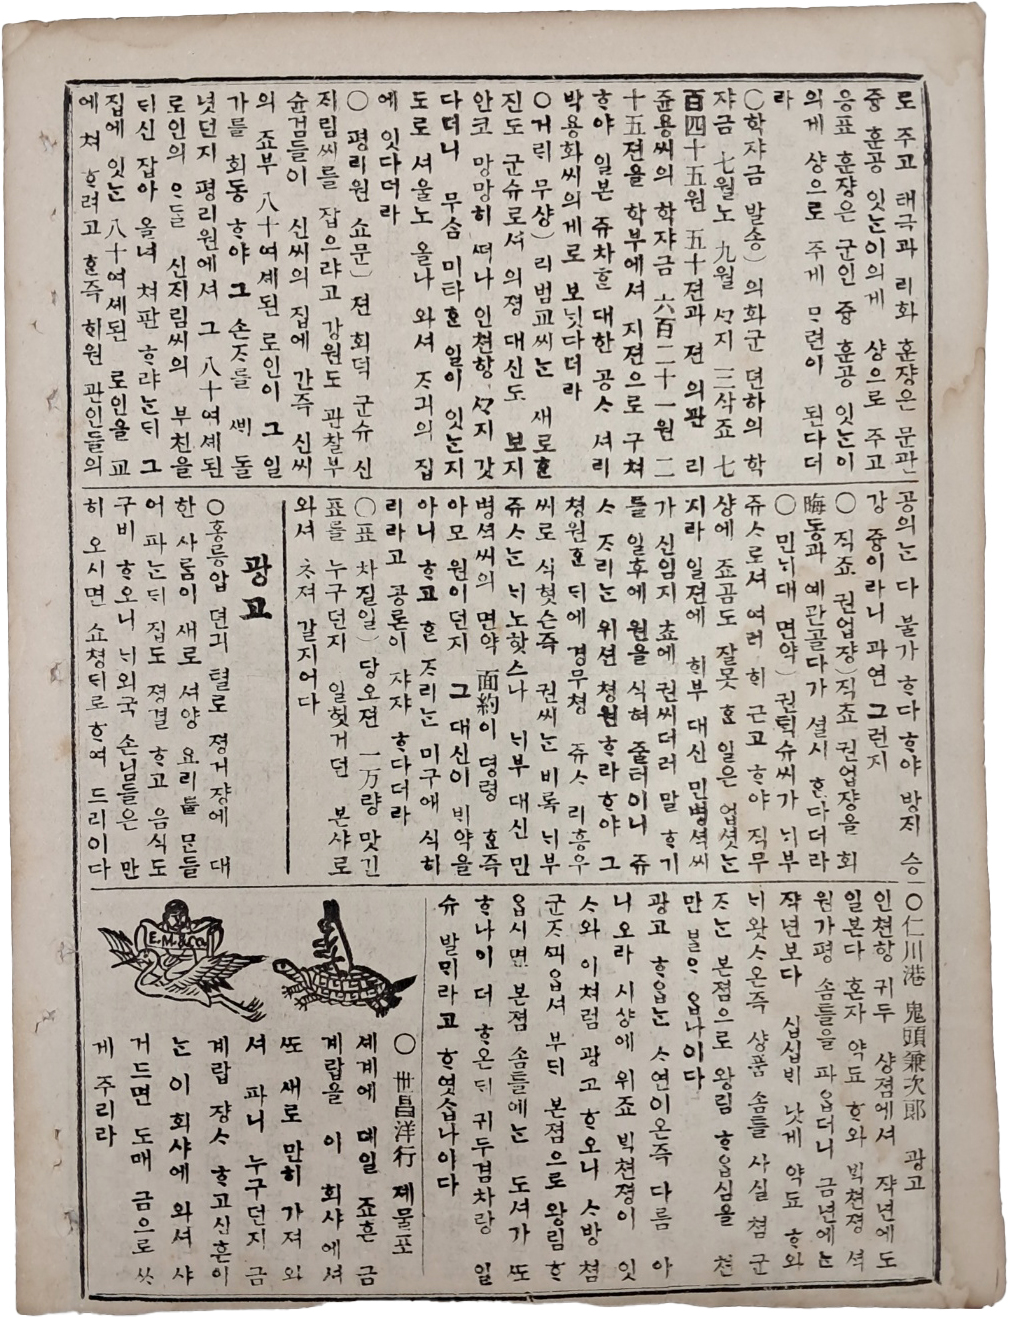 로 주고 태극과 리화 훈쟝은 문관
즁 훈공 잇ᄂᆞᆫ이의게 샹으로 주고
응표 훈쟝은 군인 즁 훈공 잇ᄂᆞᆫ이
의게 샹으로 주게 ᄆᆞ련이 된다더
라
○학쟈금 발송) 의화군 뎐하의 학
쟈금 七월노 九월 ᄭᆞ지 三삭죠 七
百四十五원 五十젼과 젼 의관 리
쥰용씨의 학쟈금 六百二十一원 二
十五젼을 학부에셔 지젼으로 구쳐
ᄒᆞ야 일본 쥬차ᄒᆞᆫ 대한 공ᄉᆞ 셔리
박용화씨의게로 보ᄂᆡᆺ다더라
○거ᄅᆡ 무샹) 리범교씨ᄂᆞᆫ 새로ᄒᆞᆫ
진도 군슈로셔 의졍 대신도 보지
안코 망망히 ᄯᅥ나 인쳔항 ᄭᆞ지 갓
다더니 무ᄉᆞᆷ 미타ᄒᆞᆫ 일이 잇ᄂᆞᆫ지
도로 셔울노 올나 와셔 ᄌᆞ긔의 집
에 잇다더라
○ 평리원 쇼문) 젼 회덕 군슈 신
지림씨를 잡으랴고 강원도 관찰부
슌검들이 신씨의 집에 간즉 신씨
의 죠부 八十여셰된 로인이 그 일
가를 회동 ᄒᆞ야 그 손ᄌᆞ를 ᄲᆡ 돌
녓던지 평리원에셔 그 八十여셰된
로인의 ᄋᆞᄃᆞᆯ 신지림씨의 부친을
ᄃᆡ신 잡아 올녀 쳐판 ᄒᆞ랴ᄂᆞᆫᄃᆡ 그
집에 잇ᄂᆞᆫ 八十여셰된 로인을 교
에 쳐 ᄒᆞ려고 ᄒᆞᆫ즉 ᄒᆡ원 관인들의
공의ᄂᆞᆫ 다 불가 ᄒᆞ다 ᄒᆞ야 방지 승
강 즁이라니 과연 그런지
○ 직죠 권업쟝) 직죠 권업쟝을 회
晦동과 예관골다가 셜시 ᄒᆞᆫ다더라
○ 민ᄂᆡ대 면약) 권ᄐᆡᆨ슈씨가 ᄂᆡ부
쥬ᄉᆞ로셔 여러 ᄒᆡ 근고 ᄒᆞ야 직무
샹에 죠곰도 잘못 ᄒᆞᆫ 일은 업셧ᄂᆞᆫ
지라 일젼에 ᄒᆡ부 대신 민병셕씨
가 신임지 쵸에 권씨더러 말 ᄒᆞ기
를 일후에 원을 식혀 줄터이니 쥬
ᄉᆞ ᄌᆞ리ᄂᆞᆫ 위션 쳥원ᄒᆞ라ᄒᆞ야 그
쳥원ᄒᆞᆫ ᄃᆡ에 경무쳥 쥬ᄉᆞ 리흥우
씨로 식혓슨즉 권씨ᄂᆞᆫ 비록 ᄂᆡ부
쥬ᄉᆞᄂᆞᆫ ᄂᆡ노핫스나 ᄂᆡ부 대신 민
병셕씨의 면약 面約이 뎡령 ᄒᆞᆫ즉
아모 원이던지 그 대신이 ᄇᆡ약을
아니 ᄒᆞ고 ᄒᆞᆫ ᄌᆞ리ᄂᆞᆫ 미구에 식히
리라고 공론이 쟈쟈 ᄒᆞ다더라
○표 차질일) 당오젼 一万량 맛긴
표를 누구던지 일헛거던 본샤로
와셔 ᄎᆞ져 갈지어다
광고
○홍릉압 뎐긔 텰로 졍거쟝에 대
한 사ᄅᆞᆷ이 새로 셔양 요리를 문들
어 파ᄂᆞᆫᄃᆡ 집도 졍결 ᄒᆞ고 음식도
구비 ᄒᆞ오니 ᄂᆡ외국 손님들은 만
히 오시면 쇼쳥ᄃᆡ로ᄒᆞ여 드리이다
○仁川港 鬼頭兼次郞 광고
인쳔항 귀두 샹졈에셔 쟉년에도
일본다 혼자 약됴 ᄒᆞ와 ᄇᆡᆨ쳔졍 셕
원가평 솜틀을 파ᄋᆞᆸ더니 금년에ᄂᆞᆫ
쟉년보다 십십ᄇᆡ 낫게 약됴 ᄒᆞ와
ᄂᆡ왓ᄉᆞ온즉 샹품 솜틀 사실 쳠 군
ᄌᆞᄂᆞᆫ 본졈으로 왕림 ᄒᆞᄋᆞᆸ심을 쳔
만 ᄇᆞᆯᄋᆞ ᄋᆞᆸ나이다
광고 ᄒᆞᄋᆞᆸᄂᆞᆫ ᄉᆞ연이온즉 다름 아
니오라 시샹에 위죠 ᄇᆡᆨ쳔졍이 잇
ᄉᆞ와 이쳐럼 광고 ᄒᆞ오니 ᄉᆞ방 쳠
군ᄌᆞᄭᅴᄋᆞᆸ셔 부ᄃᆡ 본졈으로 왕림 ᄒᆞ
ᄋᆞᆸ시면 본졈 솜틀에ᄂᆞᆫ 도셔가 ᄯᅩ
ᄒᆞ나이 더 ᄒᆞ온ᄃᆡ 귀두겸차랑 일
슈 발ᄆᆡ라고 ᄒᆞ엿ᄉᆞᆸ나이다
E.M.&Co.
○ 世昌洋行 제물포
셰계에 뎨일 죠흔 금
계랍을 이 회샤에셔
ᄯᅩ 새로 만히 가져 와
셔 파니 누구던지 금
계랍 쟝ᄉᆞ ᄒᆞ고십흔이
ᄂᆞᆫ 이 회샤에 와셔 샤
거드면 도매 금으로 ᄊᆞ
게 주리라